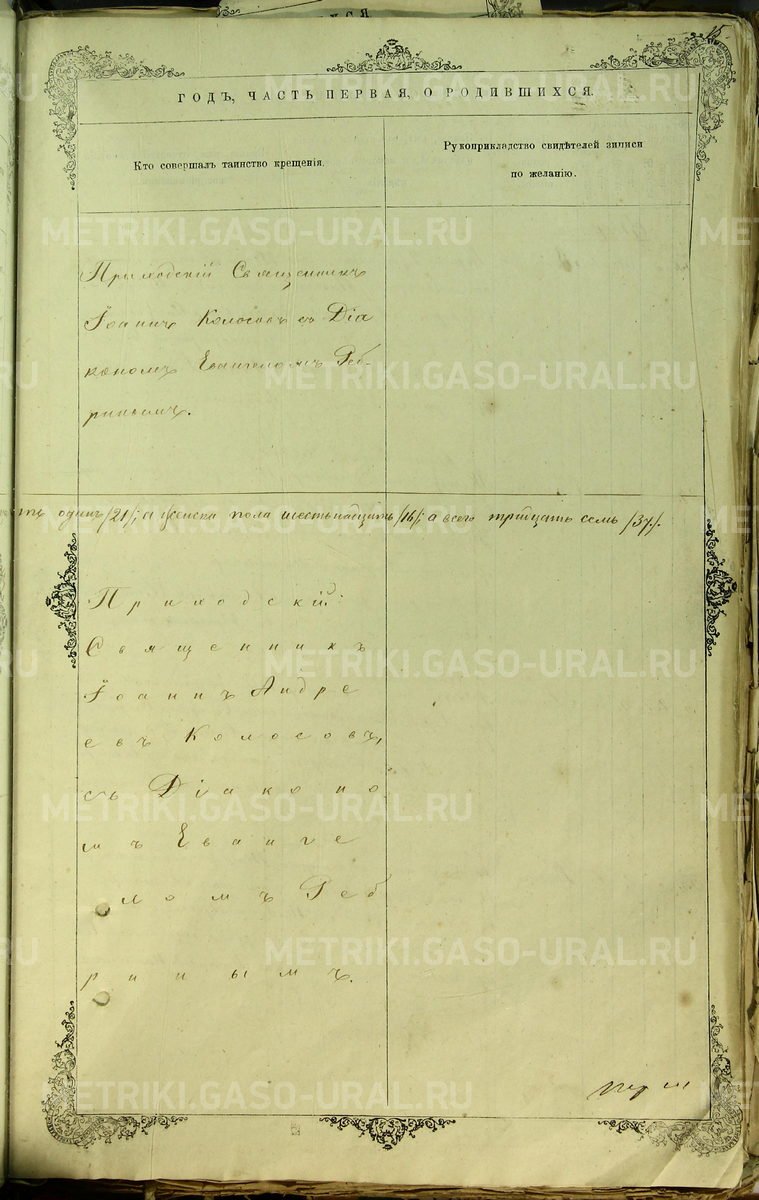 15.
ГОДЪ, ЧАСТЬ ПЕРВАЯ, О РОДИВШИХСЯ.
Кто совершалъ таинство крещенія.
Рукоприкладство свидѣтелей записи
по желанію.
Приходскій Священникъ
Іоаннъ Колосовъ съ Діа
кономъ Евангеломъ Реб-
ринымъ.
одинъ /21/; а женска пола шестьнадцать /16/; а всего тритцать семь /37/.
Приходскій
Священникъ
Іоаннъ Андре
евъ Колосовъ,
съ Діаконо
мъ Еванге
ломъ Реб
ринымъ.
METRIKI.GASO-URAL.RU